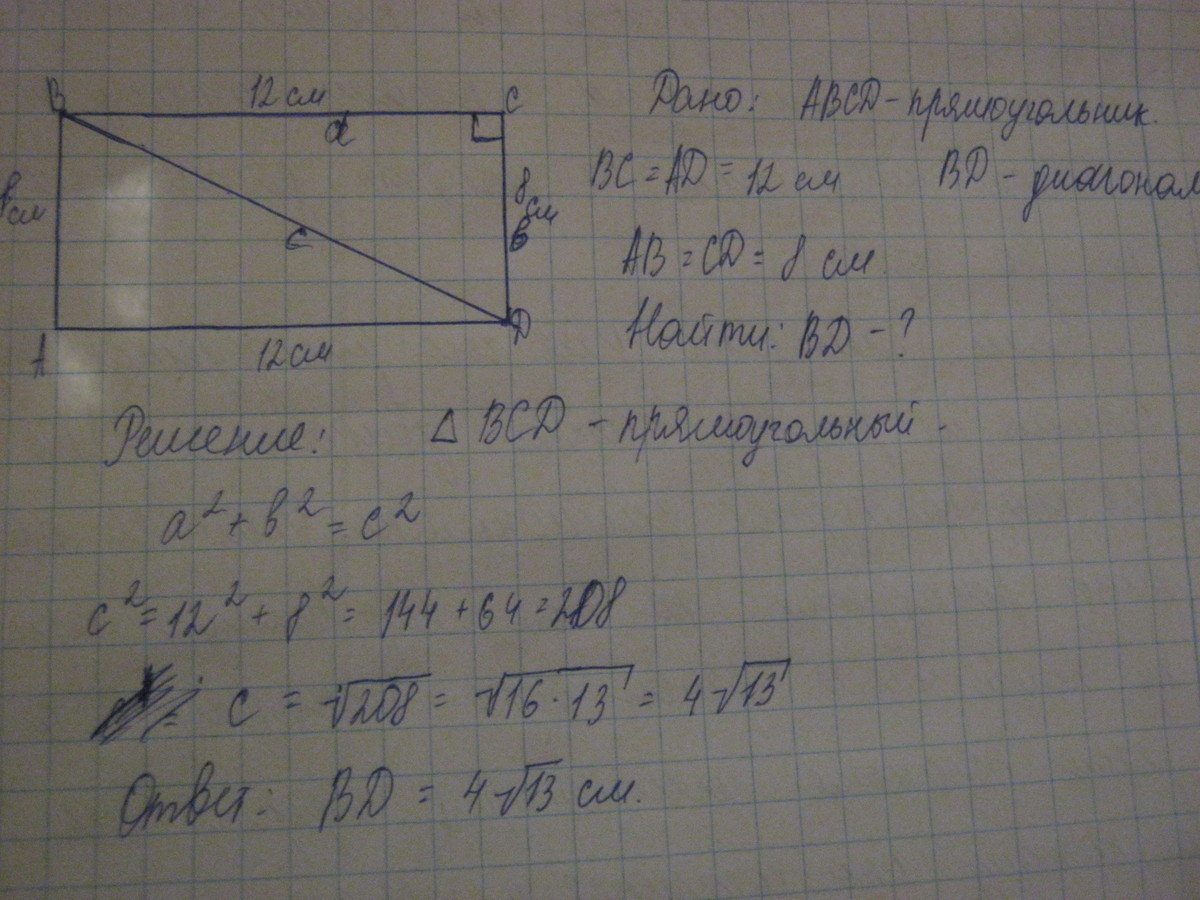 B 12 см C
a
8 см
8 см
в
c
A 12 см D
Дано: ABCD - прямоугольник.
BC = AD = 12 см BD - диагонал
AB = CD = 8 см
Найти: BD - ?
Решение: △ BCD - прямоугольный.
a² + b² = c²
c² = 12² + 8² = 144 + 64 = 208
c = √208 = √16 · 13 = 4√13
Ответ: BD = 4√13 см.